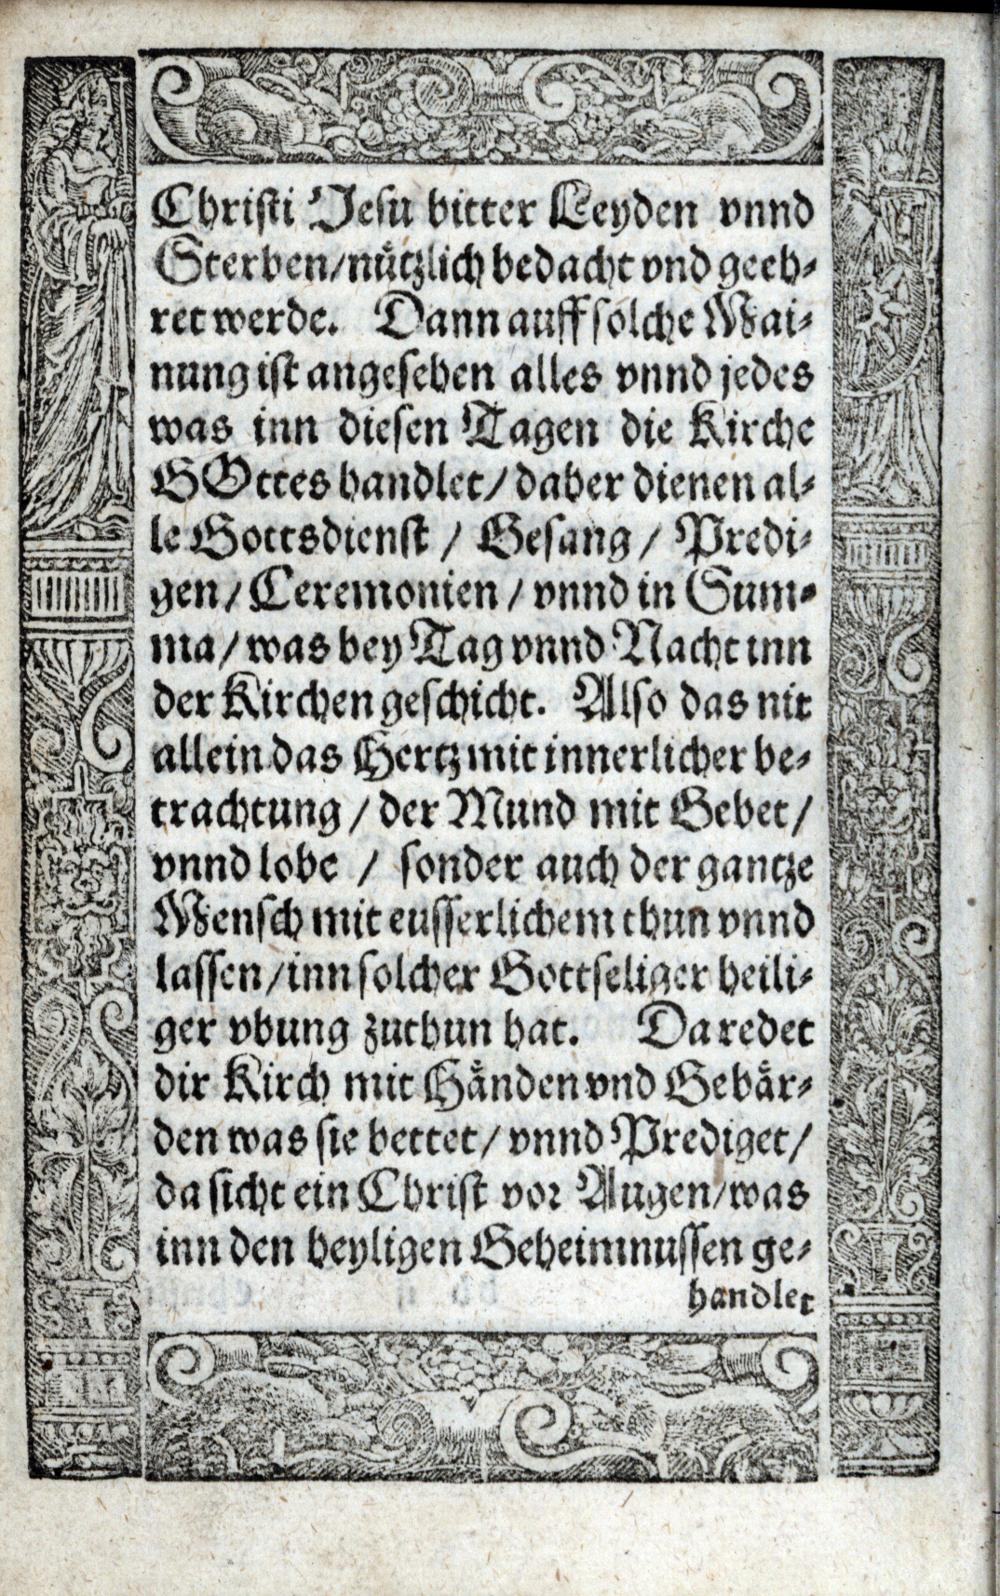 Christi Jesu bitter Leyden vnnd
Sterben/nützlich bedacht vnd geeh-
ret werde. Dann auff solche Mai-
nung ist angesehen alles vnnd jedes
was inn diesen Tagen die Kirche
GOttes handlet/ daher dienen al-
le Gottsdienst / Gesang / Predi-
gen / Ceremonien / vnnd in Sum-
ma / was bey Tag vnnd Nacht inn
der Kirchen geschicht. Also das nit
allein das Hertz mit innerlicher be-
trachtung / der Mund mit Gebet /
vnnd lobe / sonder auch der gantze
Mensch mit eusserlichem thun vnnd
lassen / inn solcher Gottseliger heili-
ger vbung zuthun hat. Da redet
dir Kirch mit Händen vnd Gebär-
den was sie bettet / vnnd Prediget /
da sicht ein Christ vor Augen/was
inn den heyligen Geheimnussen ge-
handlet